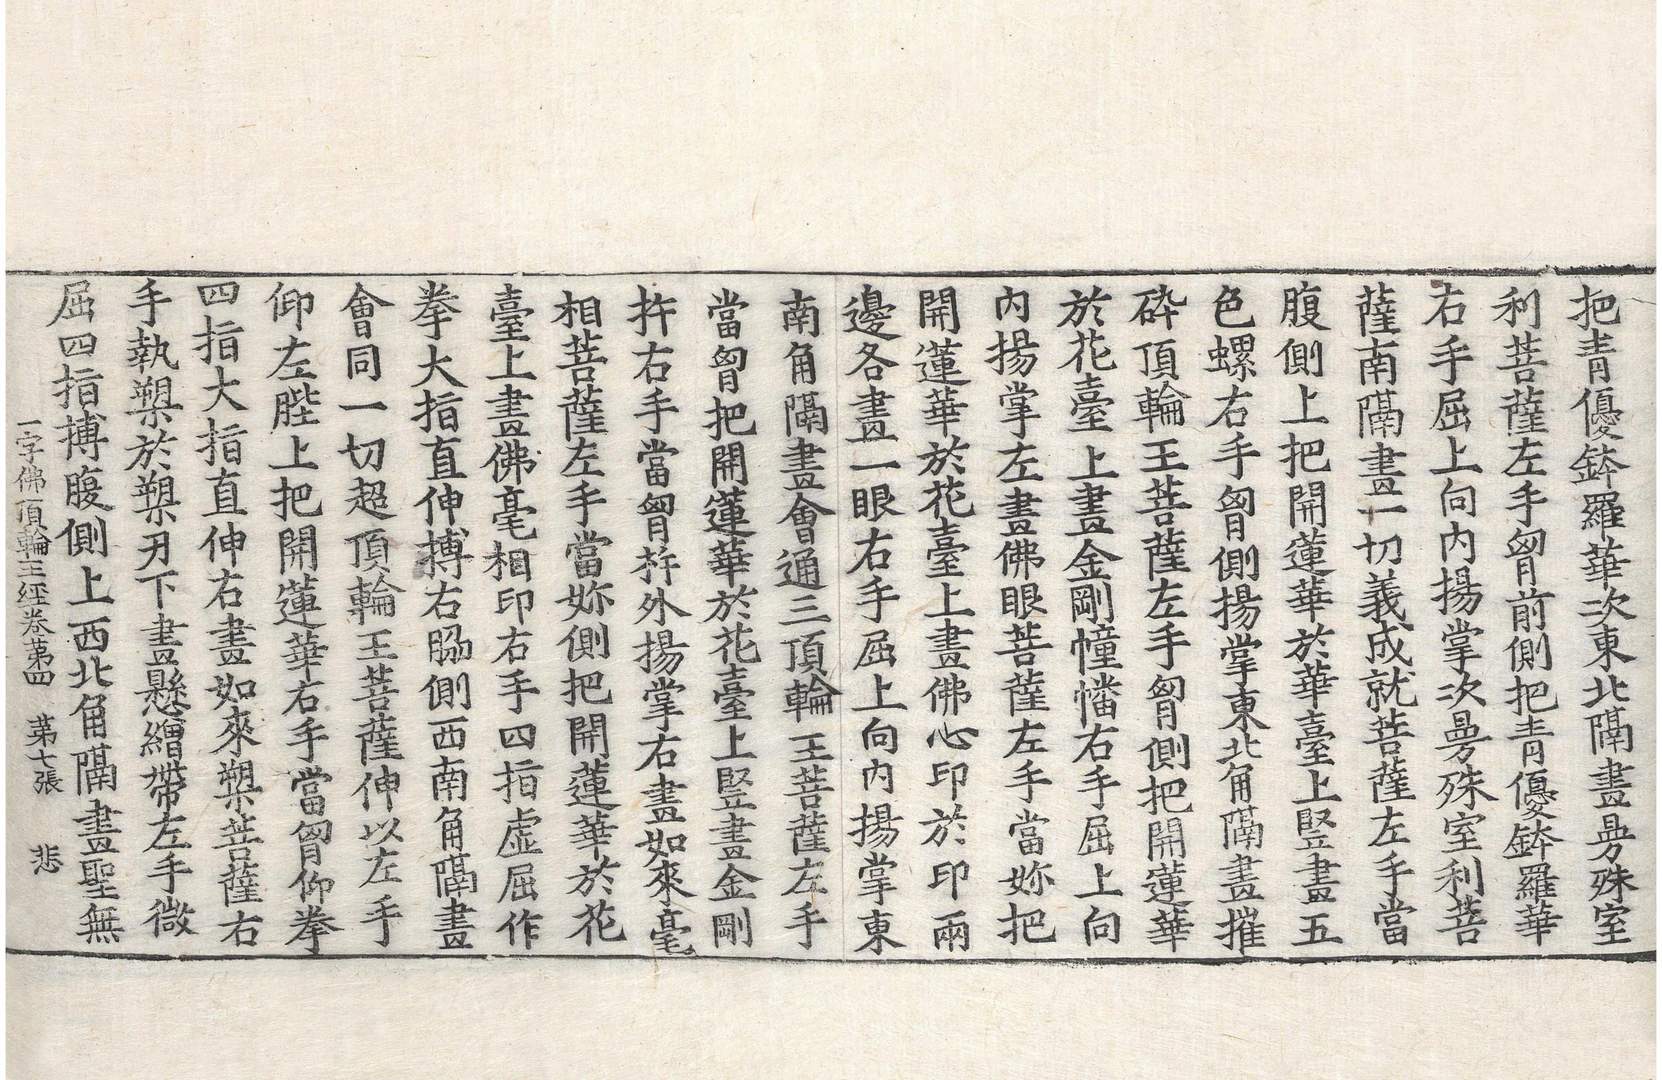 把青優鉢羅華次東北隅畫曼殊室
利菩薩左手胷前側把青優鉢羅華
右手屈上向内揚掌次曼殊室利菩
薩南隅畫一切義成就菩薩左手當
腹側上把開蓮華於華臺上竪畫五
色螺右手胷側揚掌東北角隅畫摧
碎頂輪王菩薩左手胷側把開蓮華
於花臺上畫金剛幢幡右手屈上向
内揚掌左畫佛眼菩薩左手當妳把
開蓮華於花臺上畫佛心印於印兩
邊各畫一眼右手屈上向内揚掌東
南角隅畫會通三頂輪王菩薩左手
當胷把開蓮華於花臺上竪畫金剛
杵右手當胷杵外揚掌右畫如來毫
相菩薩左手當妳側把開蓮華於花
臺上畫佛毫相印右手四指虚屈作
拳大指直伸搏右脇側西南角隅畫
會同一切超頂輪王菩薩伸以左手
仰左䏶上把開蓮華右手當胷仰拳
四指大指直伸右畫如來槊菩薩右
手執槊於槊刃下畫懸繒帶左手微
屈四指搏腹側上西北角隅畫聖無
一字佛頂輪王經卷第四　第七張　悲